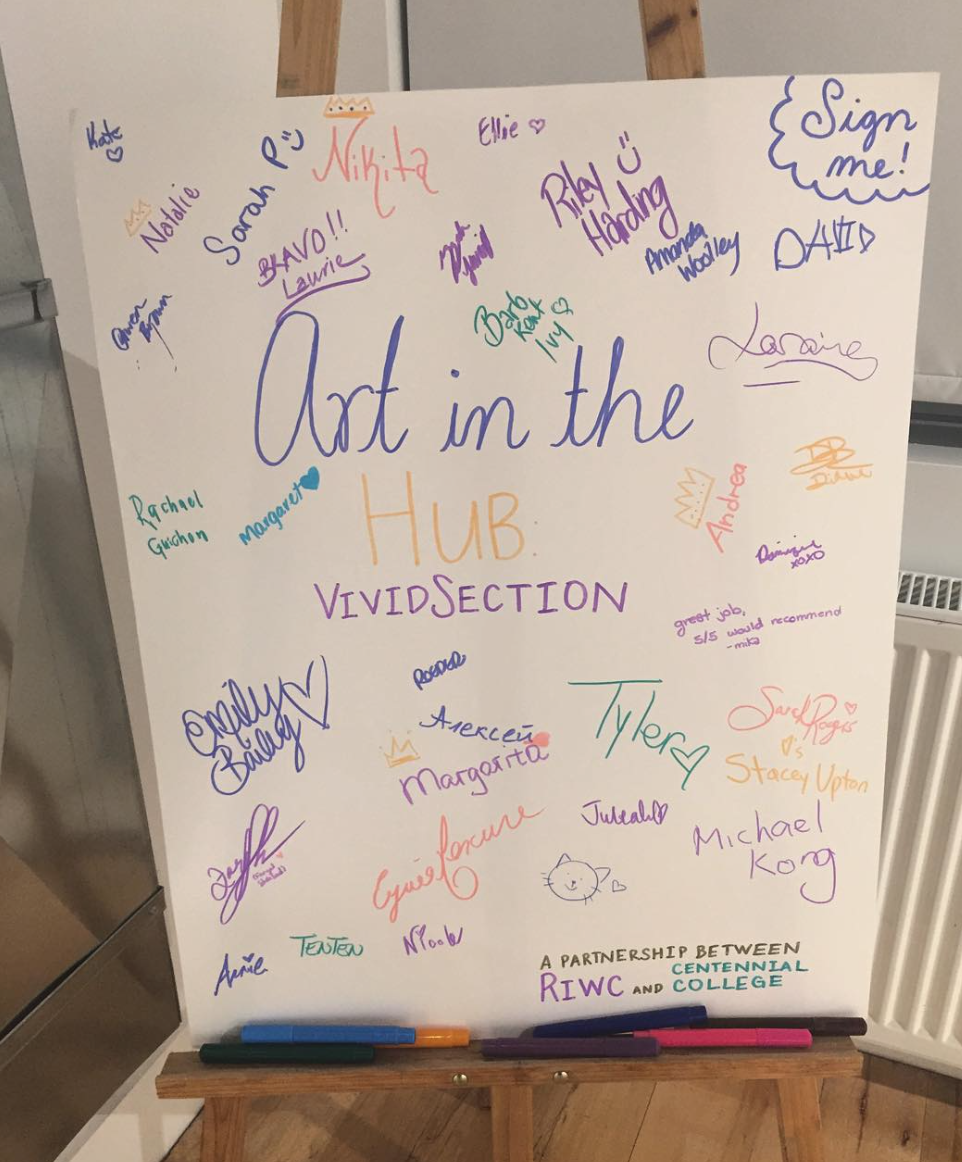 Sign
me!
Kate
Ellie
Nikita
Sarah P
Natalie
Riley
Harding
BRAVO!!
Laurie
Amanda
Woolley
DAVID
Barb
Kent
Ivy
Loraine
Art in the
HUB.
VIVIDSECTION
Rachael
Guichon
Margaret
Andrea
Dominique
xoxo
great job,
5/5 would recommend
-mika
Emily
Bailey
Алексей
Margarita
Tyler
Sarah Rogers
♡'s
Stacey Upton
Michael
Kong
TENTEN
Nicole
Annie
A PARTNERSHIP BETWEEN
RIWC AND CENTENNIAL
COLLEGE